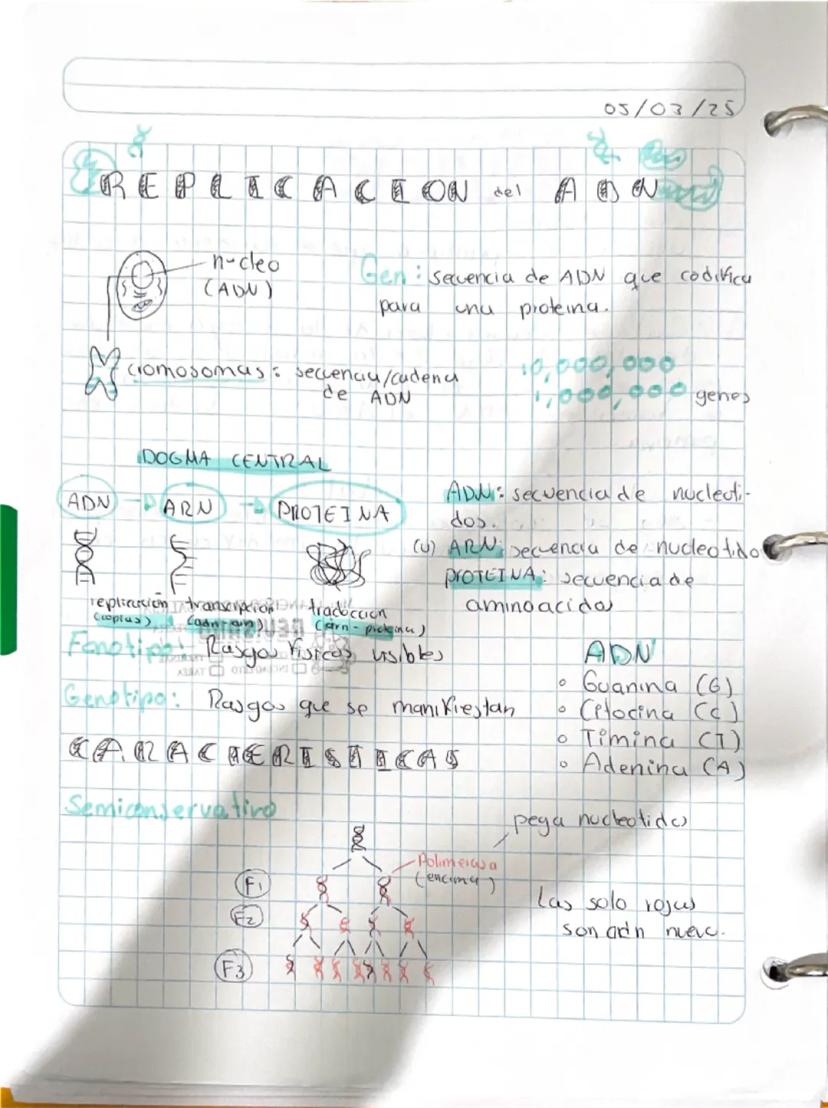 05/03/25
REPLICACION del ADN
nucleo
(ADN)
Gen: secuencia de ADN que codifica
para una proteina.
cromosomas: secuencia/cadena
de ADN
10,000,000
1,000,000 genes
DOGMA CENTRAL
ADN → ARN → PROTEINA
ADN: secuencia de nucleoti-
dos.
(u) ARN: secuencia de nucleotido
PROTEINA: secuencia de
aminoacido
replicación transcripcion traduccion
(copias) (adn-arn) (arn-proteina)
Fenotipo: Rasgos fisicos visibles
Genotipo: Rasgos que se manifiestan
ADN
• Guanina (G)
• Citocina (C)
• Timina (T)
• Adenina (A)
CARACTERISTICAS
Semiconservativo
pega nucleotidos
Polimerasa
(encima)
F1
F2
F3
Las solo rojas
son adn nuevo.